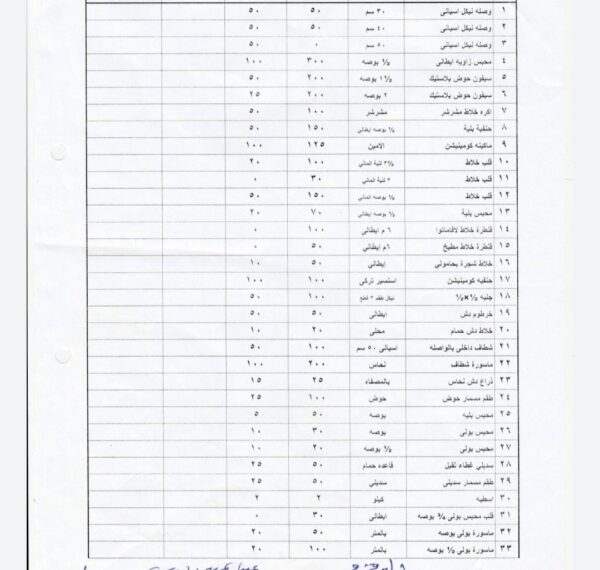 ١ وصله نيكل اسبانى ٣٠ سم ٥٠ ٥٠
٢ وصله نيكل اسبانى ٤٠ سم ٥٠ ٥٠
٣ وصله نيكل اسبانى ٥٠ سم ٠ ٥٠
٤ محبس زاويه ايطالى ½ بوصه ٣٠٠ ١٠٠
٥ سيفون حوض بلاستيك ١½ بوصه ٢٠٠ ٥٠
٦ سيفون حوض بلاستيك ٢ بوصه ٢٠٠ ٢٥
٧ اكره خلاط مشرشر مشرشر ١٠٠ ٥٠
٨ حنفية بلية ½ بوصه ايطالي ١٥٠ ٥٠
٩ ماكينه كومبنيشن الامين ١٢٥ ١٠٠
١٠ قلب خلاط ١٠٠ ٢٠
١١ قلب خلاط ٣٠ ٠
١٢ قلب خلاط ½ بوصه ايطالي ١٥٠ ٥٠
١٣ محبس بلية ½ بوصه ايطالي ٧٠ ٢٠
١٤ قنطرة خلاط ٦ م ايطالى ١٠٠ ٠
١٥ قنطرة خلاط مطبخ ٦م إيطالي ٥٠ ٠
١٦ خلاط شجرة إيطالي ٥٠ ١٠
١٧ حنفيه كومبنيشن استنسر تركى ١٠٠ ١٠٠
١٨ جلبه ½×½ نيكل طقم ٣ قطع ١٠٠ ٥٠
١٩ خرطوم دش ايطالى ٥٠ ٥٠
٢٠ خلاط دش حمام محلى ٢٠ ١٠
٢١ شطاف داخلى بالواصله اسبانى ٥٠ سم ١٠٠ ٥٠
٢٢ ماسورة شطاف نحاس ٢٠٠ ١٠٠
٢٣ ذراع دش نحاس بالمصفاه ٢٥ ١٥
٢٤ طقم مسمار حوض حوض ١٠٠ ٢٥
٢٥ محبس بليه بوصه ٥٠ ٥
٢٦ محبس بولى بوصه ٣٠ ١٠
٢٧ محبس بولى ½ بوصه ٢٠ ١٠
٢٨ سديلي غطاء ثقيل قاعده حمام ٥٠ ٢٥
٢٩ طقم مسمار سديلي سديلي ٥٠ ٢٥
٣٠ اسطبه كيلو ٢ ٢
٣١ قلب محبس بولى ¾ بوصه ايطالى ٣٠ ٠
٣٢ ماسورة بولى بوصه بالمتر ٥٠ ٢٠
٣٣ ماسورة بولى ½ بوصه بالمتر ١٠٠ ٢٠